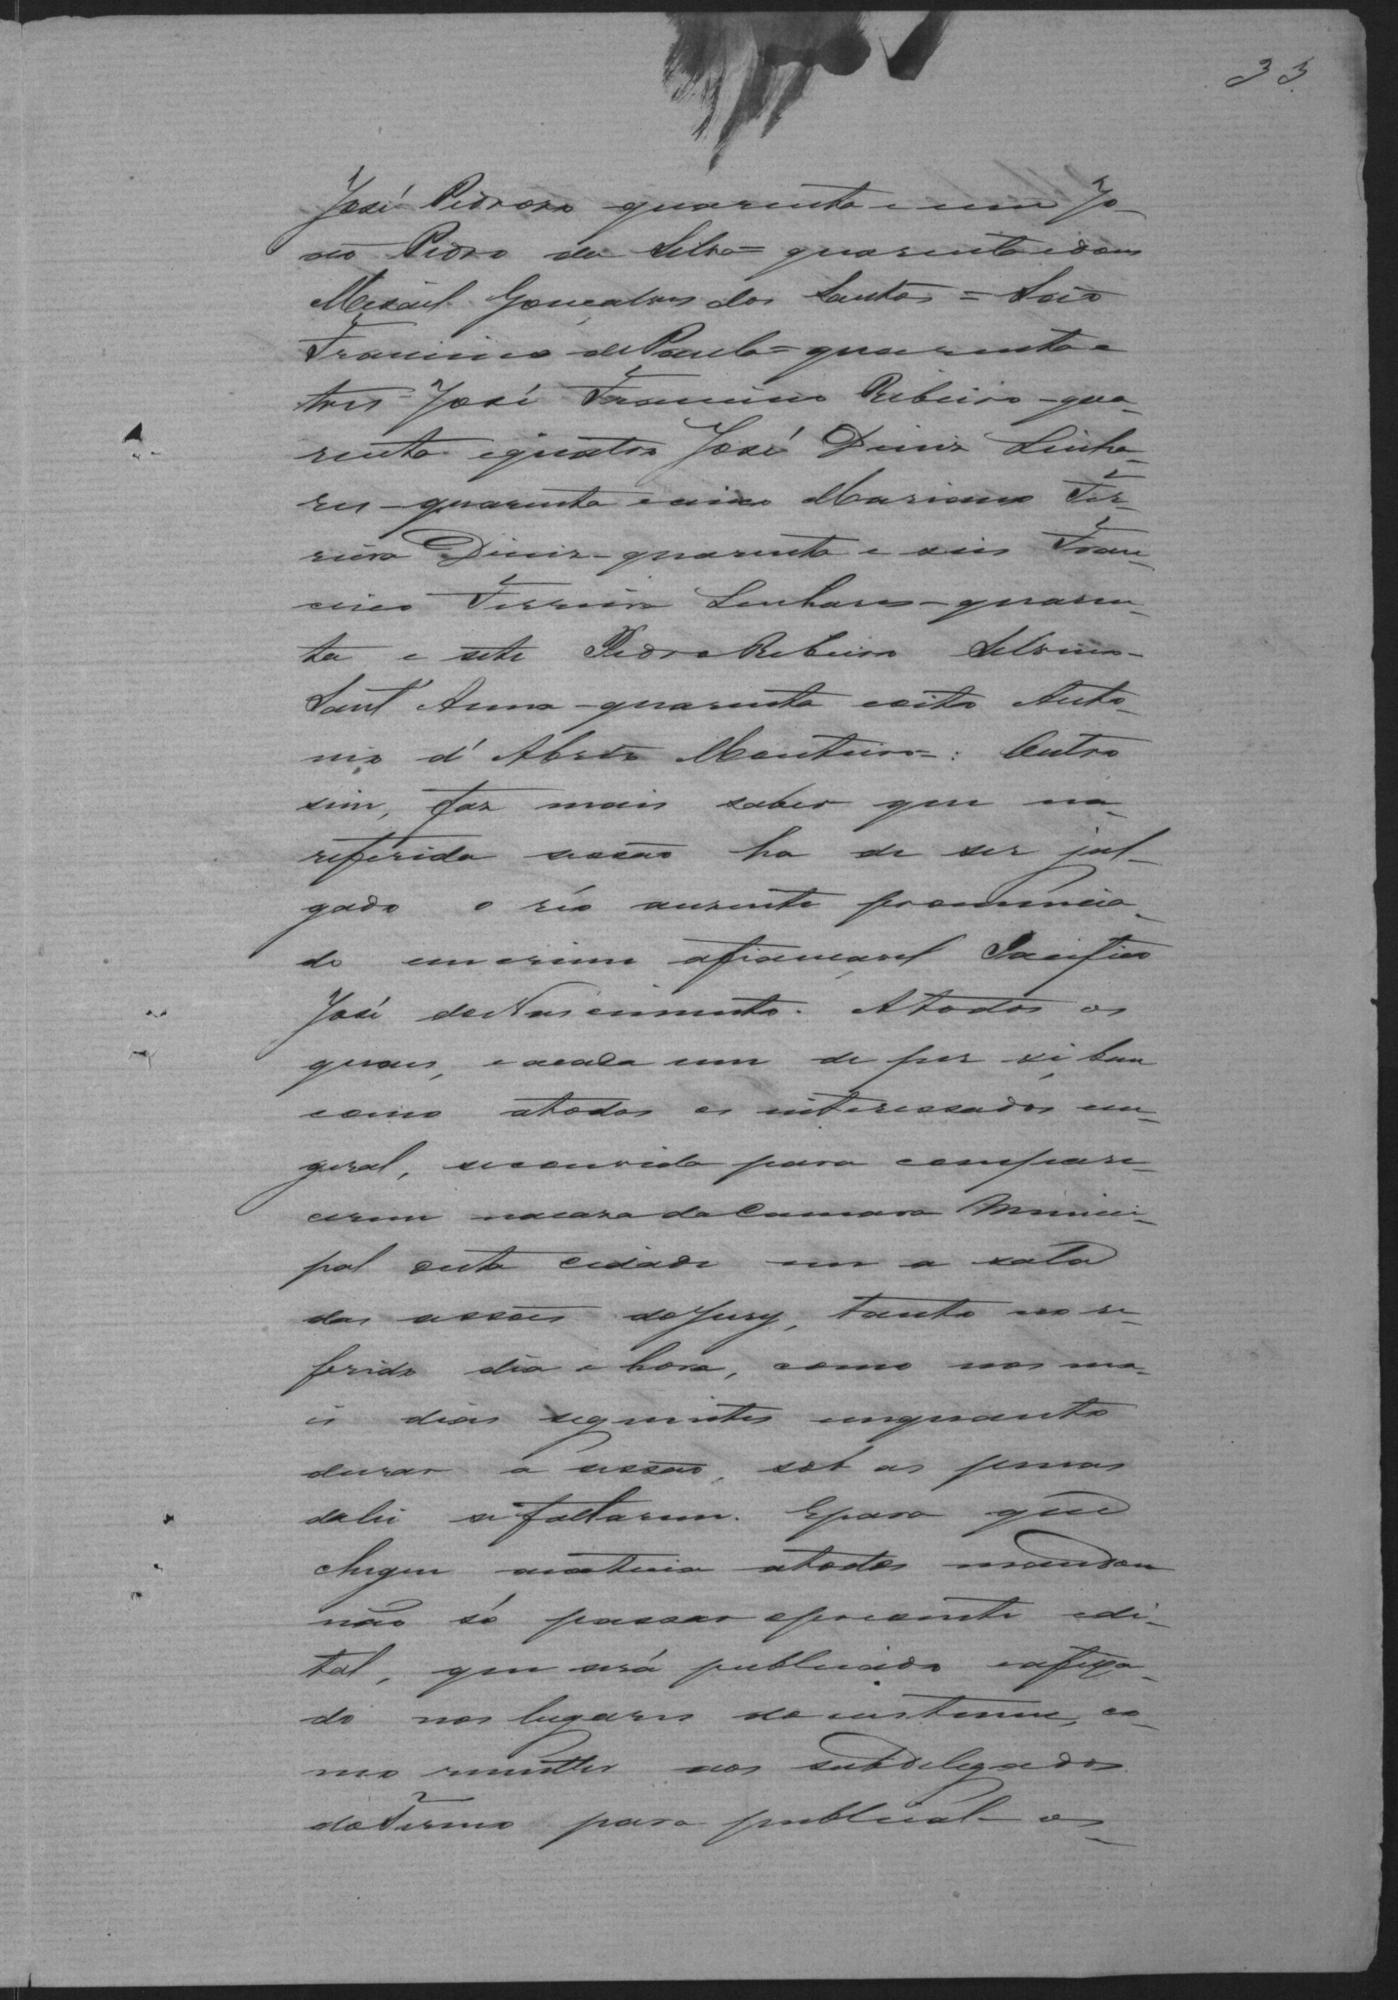 33
José Pedroso quarenta e um Jo-
ão Pedro da Silva = quarenta e dous
Misael Gonçalves dos Santos = São
Francisco de Paula = quarenta e
tres José Francisco Ribeiro - qua-
renta e quatro José Diniz Linha-
res - quarenta e cinco Mariano Fer-
reira Diniz - quarenta e seis Fran-
cisco Ferreira Linhares - quaren-
ta e sete Pedro Ribeiro Silvino -
Sant' Anna - quarenta e oito Anto-
nio d' Abreo Monteiro =: Outro
sim, faz mais saber que na-
referida sessão ha de ser jul-
gado o réo auzente pronuncia-
do em crime afiançavel Pacifico
José do Nascimento. A todos os
quaes, e a cada um de per si, bem
como a todos os interessados em-
geral, se convida para compare-
cerem na caza da Camara Munici-
pal desta cidade em a sala
das sessões do Jury, tanto no re-
ferido dia e hora, como nos ma-
is dias seguintes emquanto
durar a sessão, sob as penas
da lei se faltarem. E para que
chegue a noticia a todos mandou
não só passar o presente edi-
tal, que será publicado e afixa-
do nos lugares do custume, co-
mo remetter aos subdelegados
do Termo para publical-os-